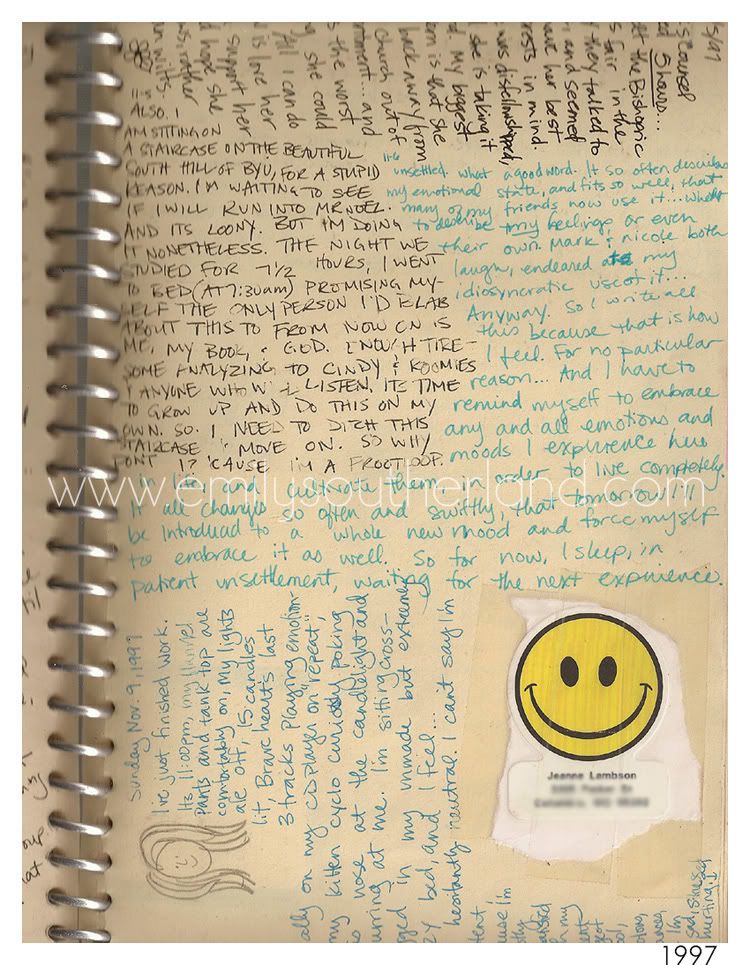 5/97
is Counsel
ed 5 hours...
ft the Bishopric
s fair in the
y they talked to
r, and seemed
have her best
rests in mind.
was disfellowshipped,
she is taking it
d. My biggest
orn is that she
back away from
Church out of
rtment... and
s the worst
g she could
All I can do
is love her
support her
d hope she
ALSO. I
AM SITTING ON
A STAIRCASE ON THE BEAUTIFUL
SOUTH HILL OF BYU, FOR A STUPID
REASON. I'M WAITING TO SEE
IF I WILL RUN INTO MR NOEL.
AND ITS LOONY. BUT I'M DOING
IT NONETHELESS. THE NIGHT WE
STUDIED FOR 7 1/2 HOURS, I WENT
TO BED (AT 7:30am) PROMISING MY-
SELF THE ONLY PERSON I'D BLAB
ABOUT THIS TO FROM NOW ON IS
ME, MY BOOK, & GOD. ENOUGH TIRE-
SOME ANALYZING TO CINDY & ROOMIES
& ANYONE WHO WILL LISTEN. ITS TIME
TO GROW UP AND DO THIS ON MY
OWN. SO. I NEED TO DITCH THIS
STAIRCASE & MOVE ON. SO WHY
DONT I? 'CAUSE I'M A FROOTLOOP.
11-6
unsettled. what a good word. It so often describes
my emotional state, and fits so well, that
many of my friends now use it... whether
to describe my feelings or even
their own. Mark & nicole both
laugh, endeared at my
idiosyncratic use of it...
Anyway. So I write all
this because that is how
I feel. For no particular
reason... And I have to
remind myself to embrace
any and all emotions and
moods I experience here
in life, and cultivate them, in order to live completely.
It all changes so often and swiftly, that tomorrow I'll
be introduced to a whole new mood and force myself
to embrace it as well. So for now, I sleep, in
patient unsettlement, waiting for the next experience.
www.emilysoutherland.com
Sunday Nov. 9, 1997
I've just finished work.
Its 11:00pm, my flannel
pants and tank top are
comfortably on, my lights
are off, 15 candles
lit, Bravehearts last
3 tracks playing emotion-
ally on my CD player on "repeat",
my kitten cyclo curiously poking
his nose at the candlelight and
purring at me. I'm sitting cross-
legged in my unmade but extremely
bed, and I feel...
hesitantly neutral. I cant say I'm
Jeanne Lambson
hurting.
1997